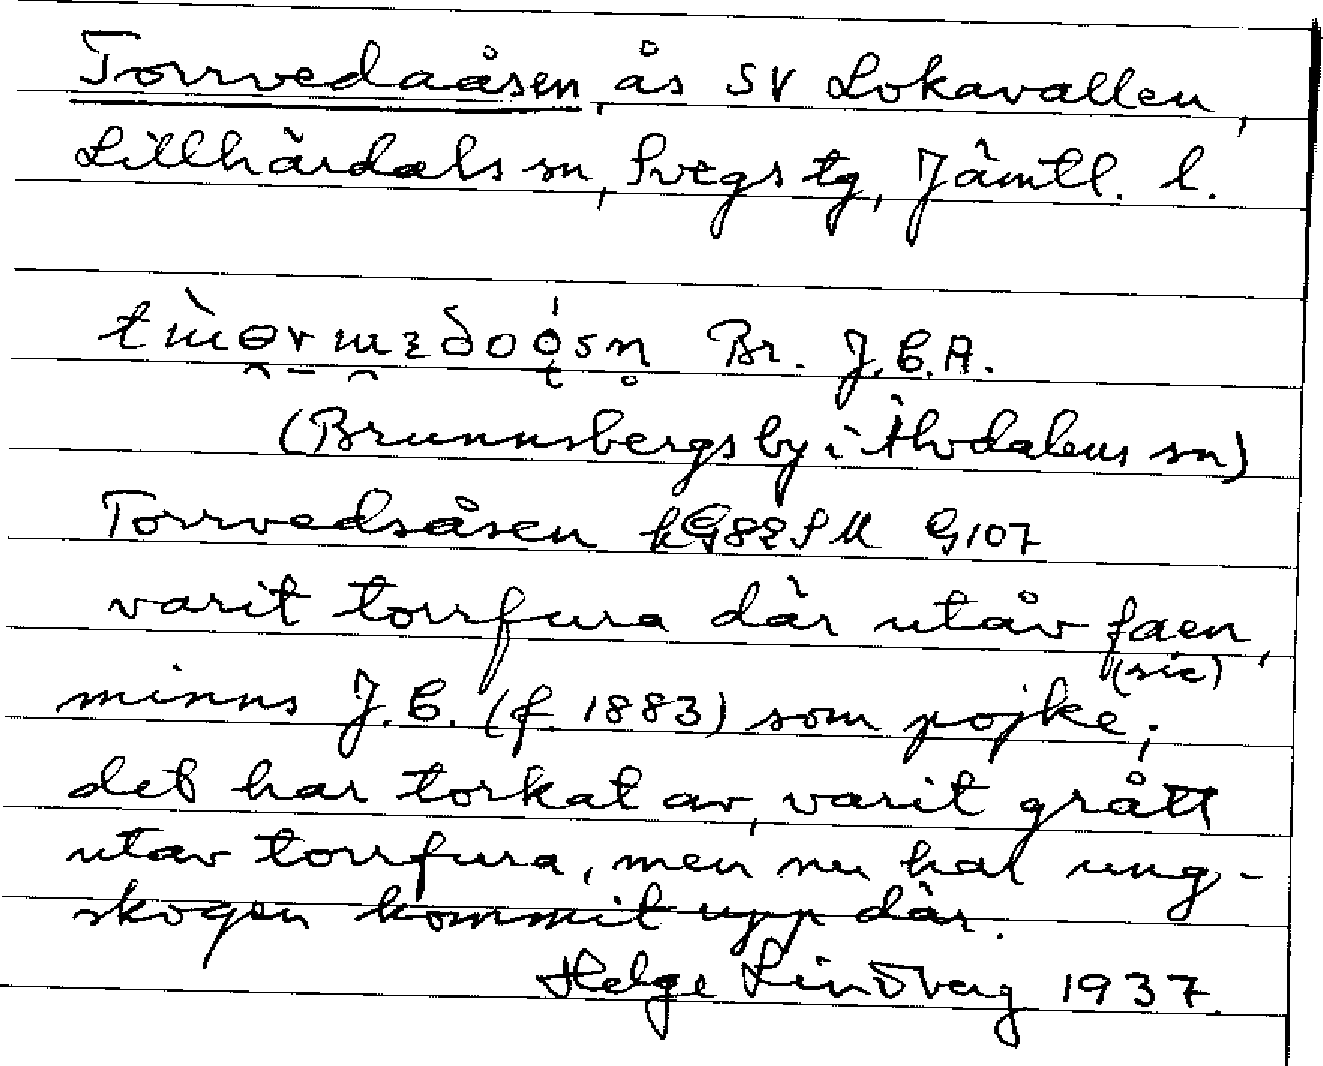 Torrvedaåsen, ås SV Lokavallen,
Lillhärdals sn, Svegs tg, Jämtl. l.
Br. J.E.A.
(Brunnsbergs by i Älvdalens sn)
Torrvedsåsen G107
varit torrfura där utåv faen,
(sic)
minns J.E. (f. 1883) som pojke;
det har torkat av, varit grått
utav torrfura, men nu har ung-
skogen kommit upp där.
Helge Lindberg 1937.